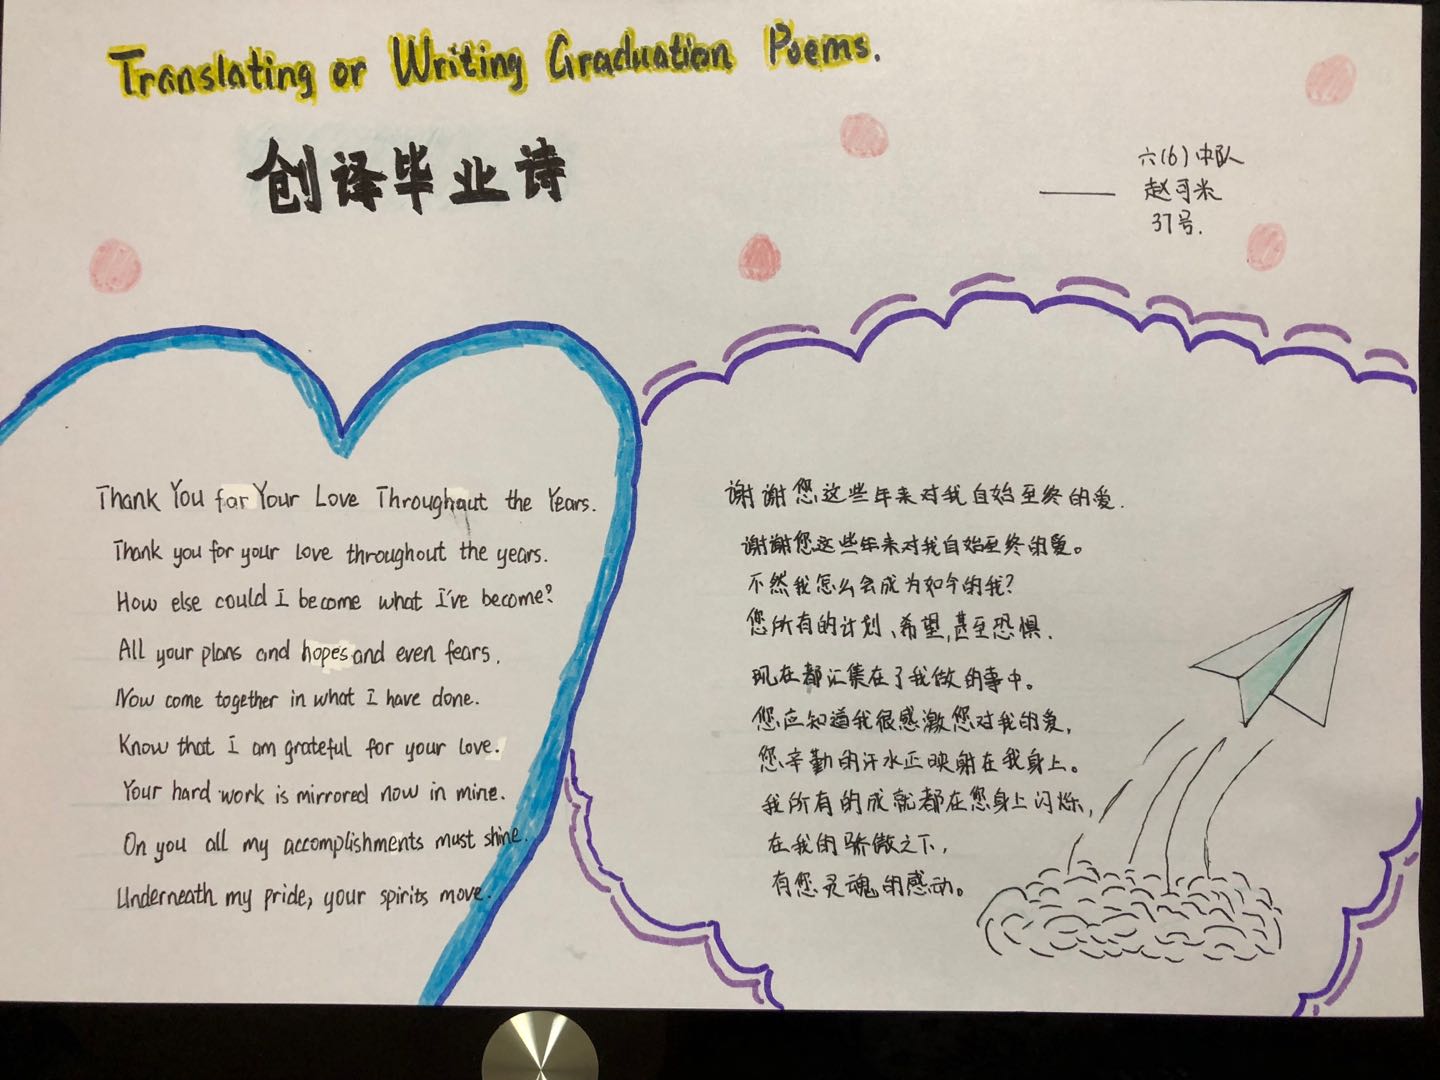 Translating or Writing Graduation Poems.
创译毕业诗
六(6)中队
——— 赵可米
37号.
Thank You for Your Love Throughout the Years.
Thank you for your love throughout the years.
How else could I become what I've become?
All your plans and hopes and even fears.
Now come together in what I have done.
Know that I am grateful for your love.
Your hard work is mirrored now in mine.
On you all my accomplishments must shine.
Underneath my pride, your spirits move.
谢谢您这些年来对我自始至终的爱.
谢谢您这些年来对我自始至终的爱。
不然我怎么会成为如今的我?
您所有的计划、希望,甚至恐惧.
现在都汇集在了我做的事中。
您应知道我很感激您对我的爱,
您辛勤的汗水正映射在我身上。
我所有的成就都在您身上闪烁,
在我的骄傲之下,
有您灵魂的感动。